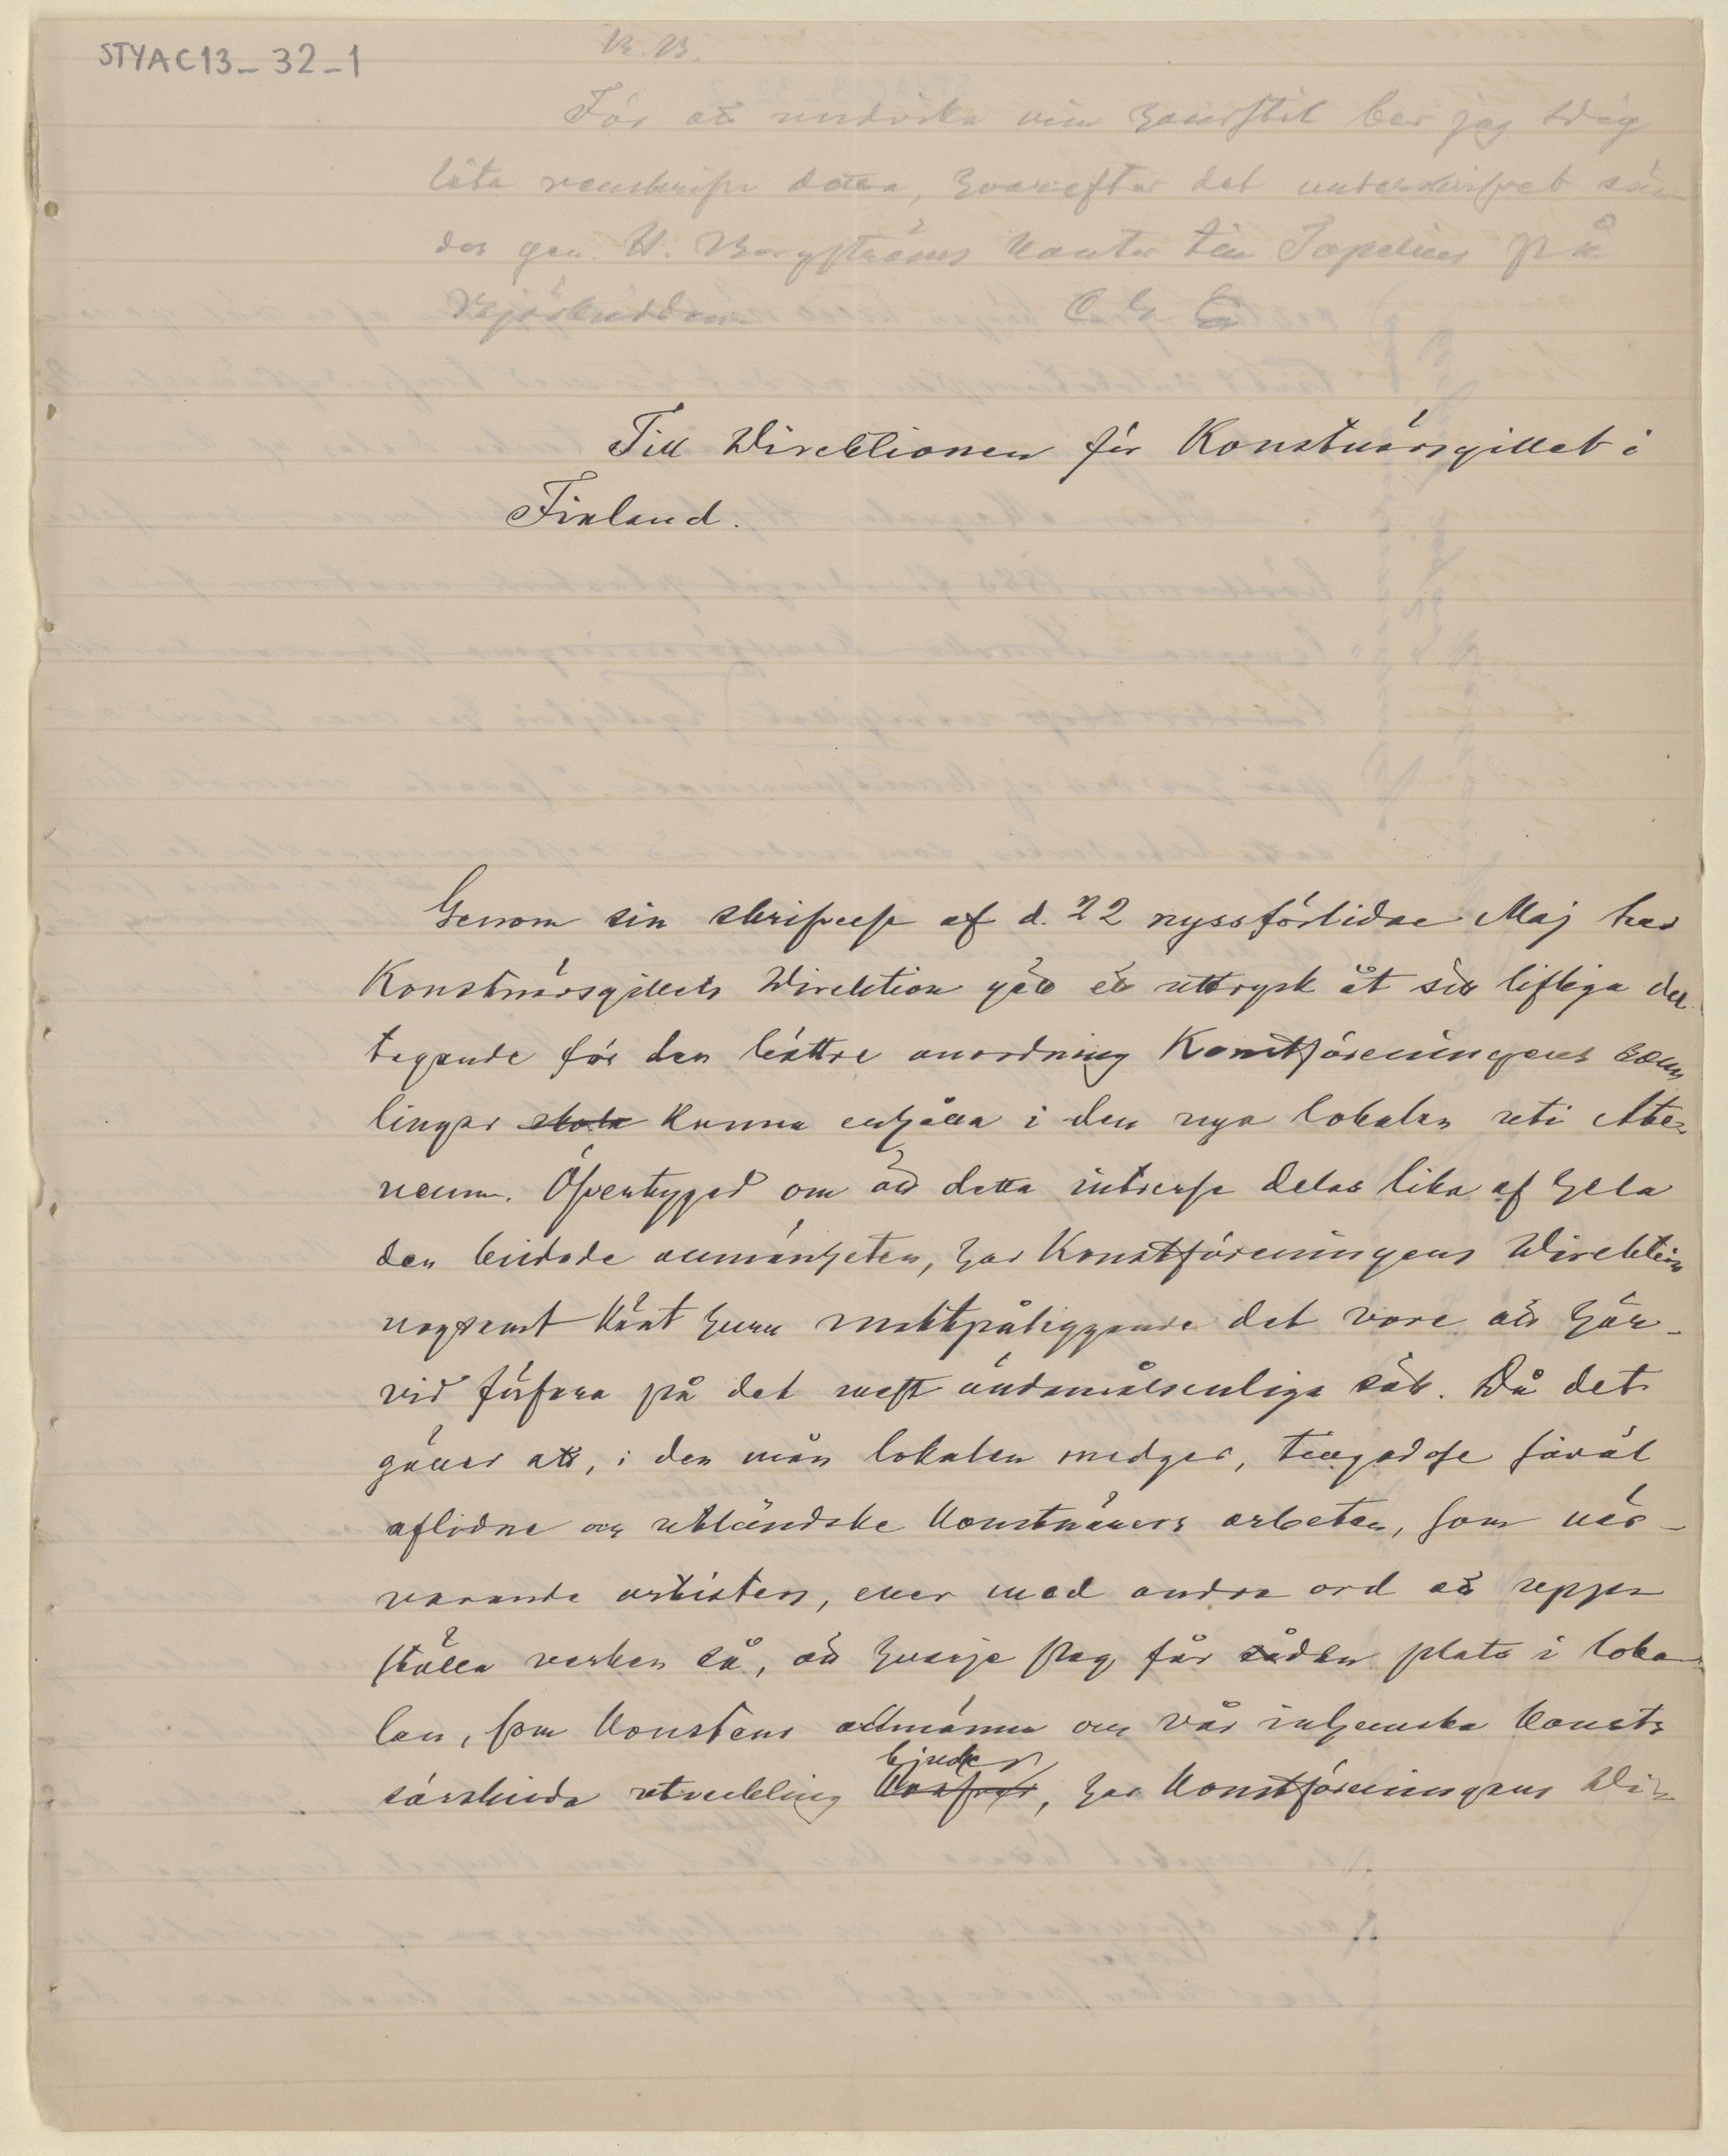 STYAC13_32_1
B. B.
För att undvika min handstil ber jag Dig
låta renskrifva detta, hvarefter det underskrifvet sän-
des gen. H. Borgströms kontor till Topelius på
Björkudden. C. G. E
Till Direktionen för Konstnärsgillet i
Finland.
Genom sin skrifvelse af d. 22 nyssförlidne Maj har
Konstnärsgillets Direktion gett ett uttryck åt sitt lifliga del-
tagande för den bättre anordning Konstföreningens sam-
lingar skola kunna erhålla i den nya lokalen uti Ate-
neum. Öfvertygad om att detta intresse delas lika af hela
den bildade allmänheten, har Konstföreningens Direktion
nogsamt känt huru maktpåliggande det vore att här-
vid förfara på det mest ändamålsenliga sätt. Då det
gäller att, i den mån lokalen medger, tillgodose såväl
aflidne och utländske konstnärers arbeten, som när-
varande artisters, eller med andra ord att uppn
ställa verken så, att hvarje slag får sådan plats i loka-
len, som konstens allmänna och vår inhemska konsts
särskilda utveckling bjuder, har Konstföreningens Di-